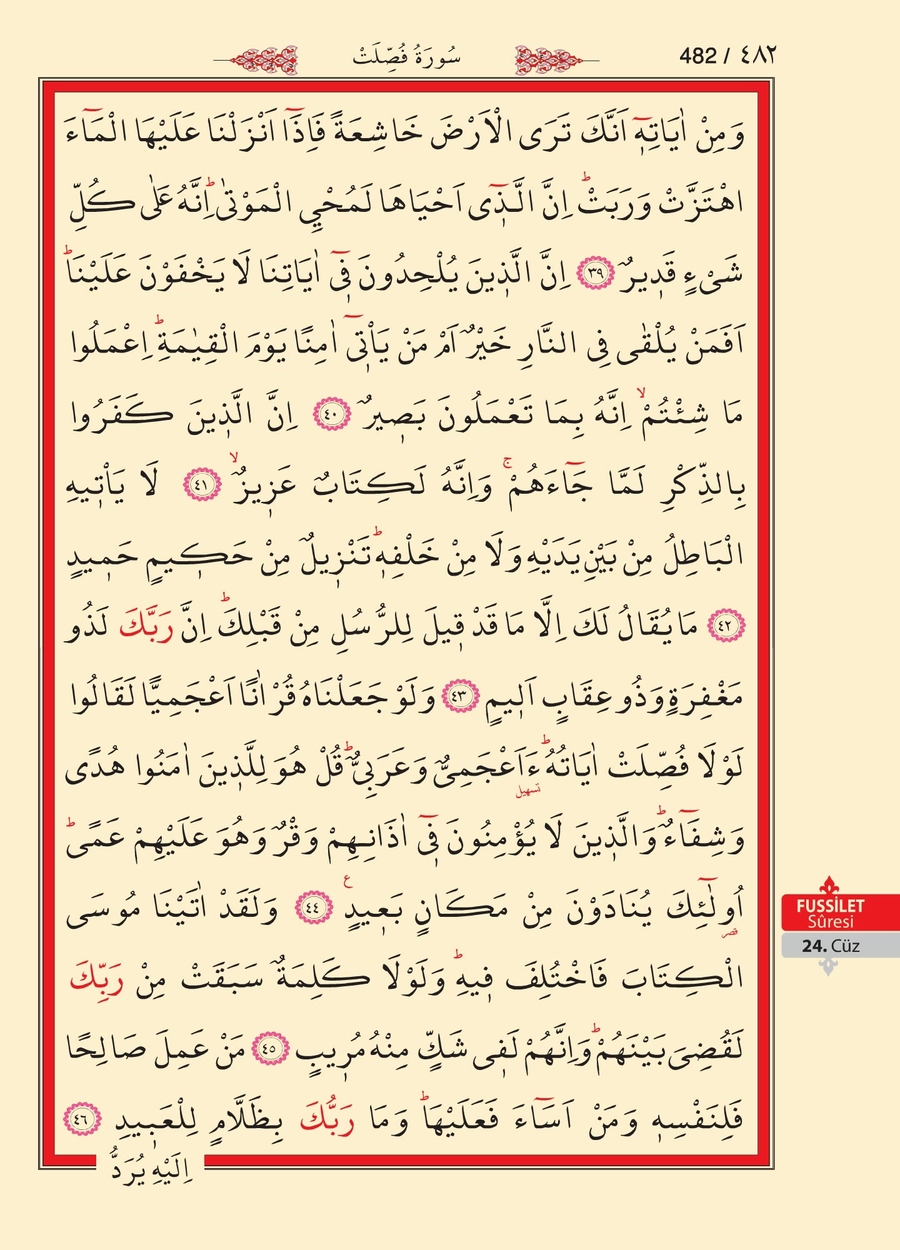 سُورَةُ فُصِّلَتْ
482 / ٤٨٢
وَمِنْ اٰيَاتِهٖٓ اَنَّكَ تَرَى الْاَرْضَ خَاشِعَةً فَاِذَٓا اَنْزَلْنَا عَلَيْهَا الْمَٓاءَ
اهْتَزَّتْ وَرَبَتْؕ اِنَّ الَّذٖٓى اَحْيَاهَا لَمُحْيِى الْمَوْتٰىؕ اِنَّهُ عَلٰى كُلِّ
شَىْءٍ قَدٖيرٌ ﴿٣٩﴾ اِنَّ الَّذٖينَ يُلْحِدُونَ فٖٓى اٰيَاتِنَا لَا يَخْفَوْنَ عَلَيْنَاؕ
اَفَمَنْ يُلْقٰى فِى النَّارِ خَيْرٌ اَمْ مَنْ يَاْتٖٓى اٰمِنًا يَوْمَ الْقِيٰمَةِؕ اِعْمَلُوا
مَا شِئْتُمْۙ اِنَّهُ بِمَا تَعْمَلُونَ بَصٖيرٌ ﴿٤٠﴾ اِنَّ الَّذٖينَ كَفَرُوا
بِالذِّكْرِ لَمَّا جَٓاءَهُمْۚ وَاِنَّهُ لَكِتَابٌ عَزٖيزٌۙ ﴿٤١﴾ لَا يَاْتٖيهِ
الْبَاطِلُ مِنْ بَيْنِ يَدَيْهِ وَلَا مِنْ خَلْفِهٖؕ تَنْزٖيلٌ مِنْ حَكٖيمٍ حَمٖيدٍ
﴿٤٢﴾ مَا يُقَالُ لَكَ اِلَّا مَا قَدْ قٖيلَ لِلرُّسُلِ مِنْ قَبْلِكَؕ اِنَّ رَبَّكَ لَذُو
مَغْفِرَةٍ وَذُو عِقَابٍ اَلٖيمٍ ﴿٤٣﴾ وَلَوْ جَعَلْنَاهُ قُرْاٰنًا اَعْجَمِيًّا لَقَالُوا
لَوْلَا فُصِّلَتْ اٰيَاتُهُؕ ءَاَعْجَمِىٌّ وَعَرَبِىٌّؕ قُلْ هُوَ لِلَّذٖينَ اٰمَنُوا هُدًى
تسهيل
وَشِفَٓاءٌؕ وَالَّذٖينَ لَا يُؤْمِنُونَ فٖٓى اٰذَانِهِمْ وَقْرٌ وَهُوَ عَلَيْهِمْ عَمًىؕ
اُولٰٓئِكَ يُنَادَوْنَ مِنْ مَكَانٍ بَعٖيدٍ ع ﴿٤٤﴾ وَلَقَدْ اٰتَيْنَا مُوسَى
قصر
الْكِتَابَ فَاخْتُلِفَ فٖيهِؕ وَلَوْلَا كَلِمَةٌ سَبَقَتْ مِنْ رَبِّكَ
لَقُضِىَ بَيْنَهُمْؕ وَاِنَّهُمْ لَفٖى شَكٍّ مِنْهُ مُرٖيبٍ ﴿٤٥﴾ مَنْ عَمِلَ صَالِحًا
فَلِنَفْسِهٖ وَمَنْ اَسَٓاءَ فَعَلَيْهَاؕ وَمَا رَبُّكَ بِظَلَّامٍ لِلْعَبٖيدِ ﴿٤٦﴾
اِلَيْهِ يُرَدُّ
FUSSİLET
Sûresi
24. Cüz